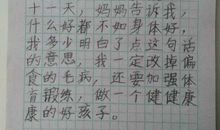 十一天，妈妈告诉我，
什么好都不如身体好，
我多少明白了点这句话
的意思，我一定改掉偏
食的毛病，还要加强体
育锻炼，做一个健健康
康的好孩子。